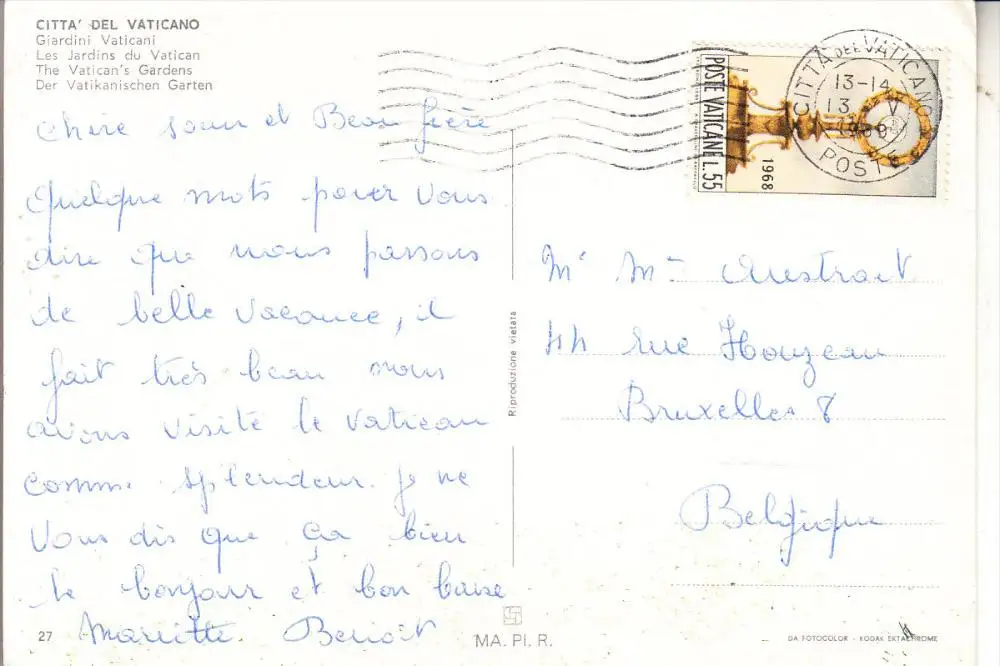 CITTA' DEL VATICANO
Giardini Vaticani
Les Jardins du Vatican
The Vatican's Gardens
Der Vatikanischen Garten
Chère soeur et Beau frère
quelque mots pouer vous
dire que nous passons
de belle vacance, il
fait très beau nous
avons visité le vatican
comme splendeur. je ne
vous dis que ça bien
le bonjour et bon baise
Mariette Benoit
27
MA. PI. R.
Riproduzione vietata
POSTE VATICANE L. 55
1968
CITTA' DEL VATICANO
13-14
13. V
1968
POSTE
Mr Mme
44 rue Houzeau
Bruxelles 8
Belgique
DA FOTOCOLOR - KODAK EKTACHROME